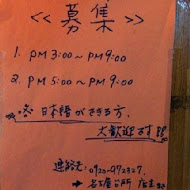 << 募集 >>
1. PM 3:00~ PM 9:00
2. PM 5:00~ PM 9:00
※ 日本語ができる方、
大歓迎です!!
連絡先: 0920-972327
→ 名古屋台所 店